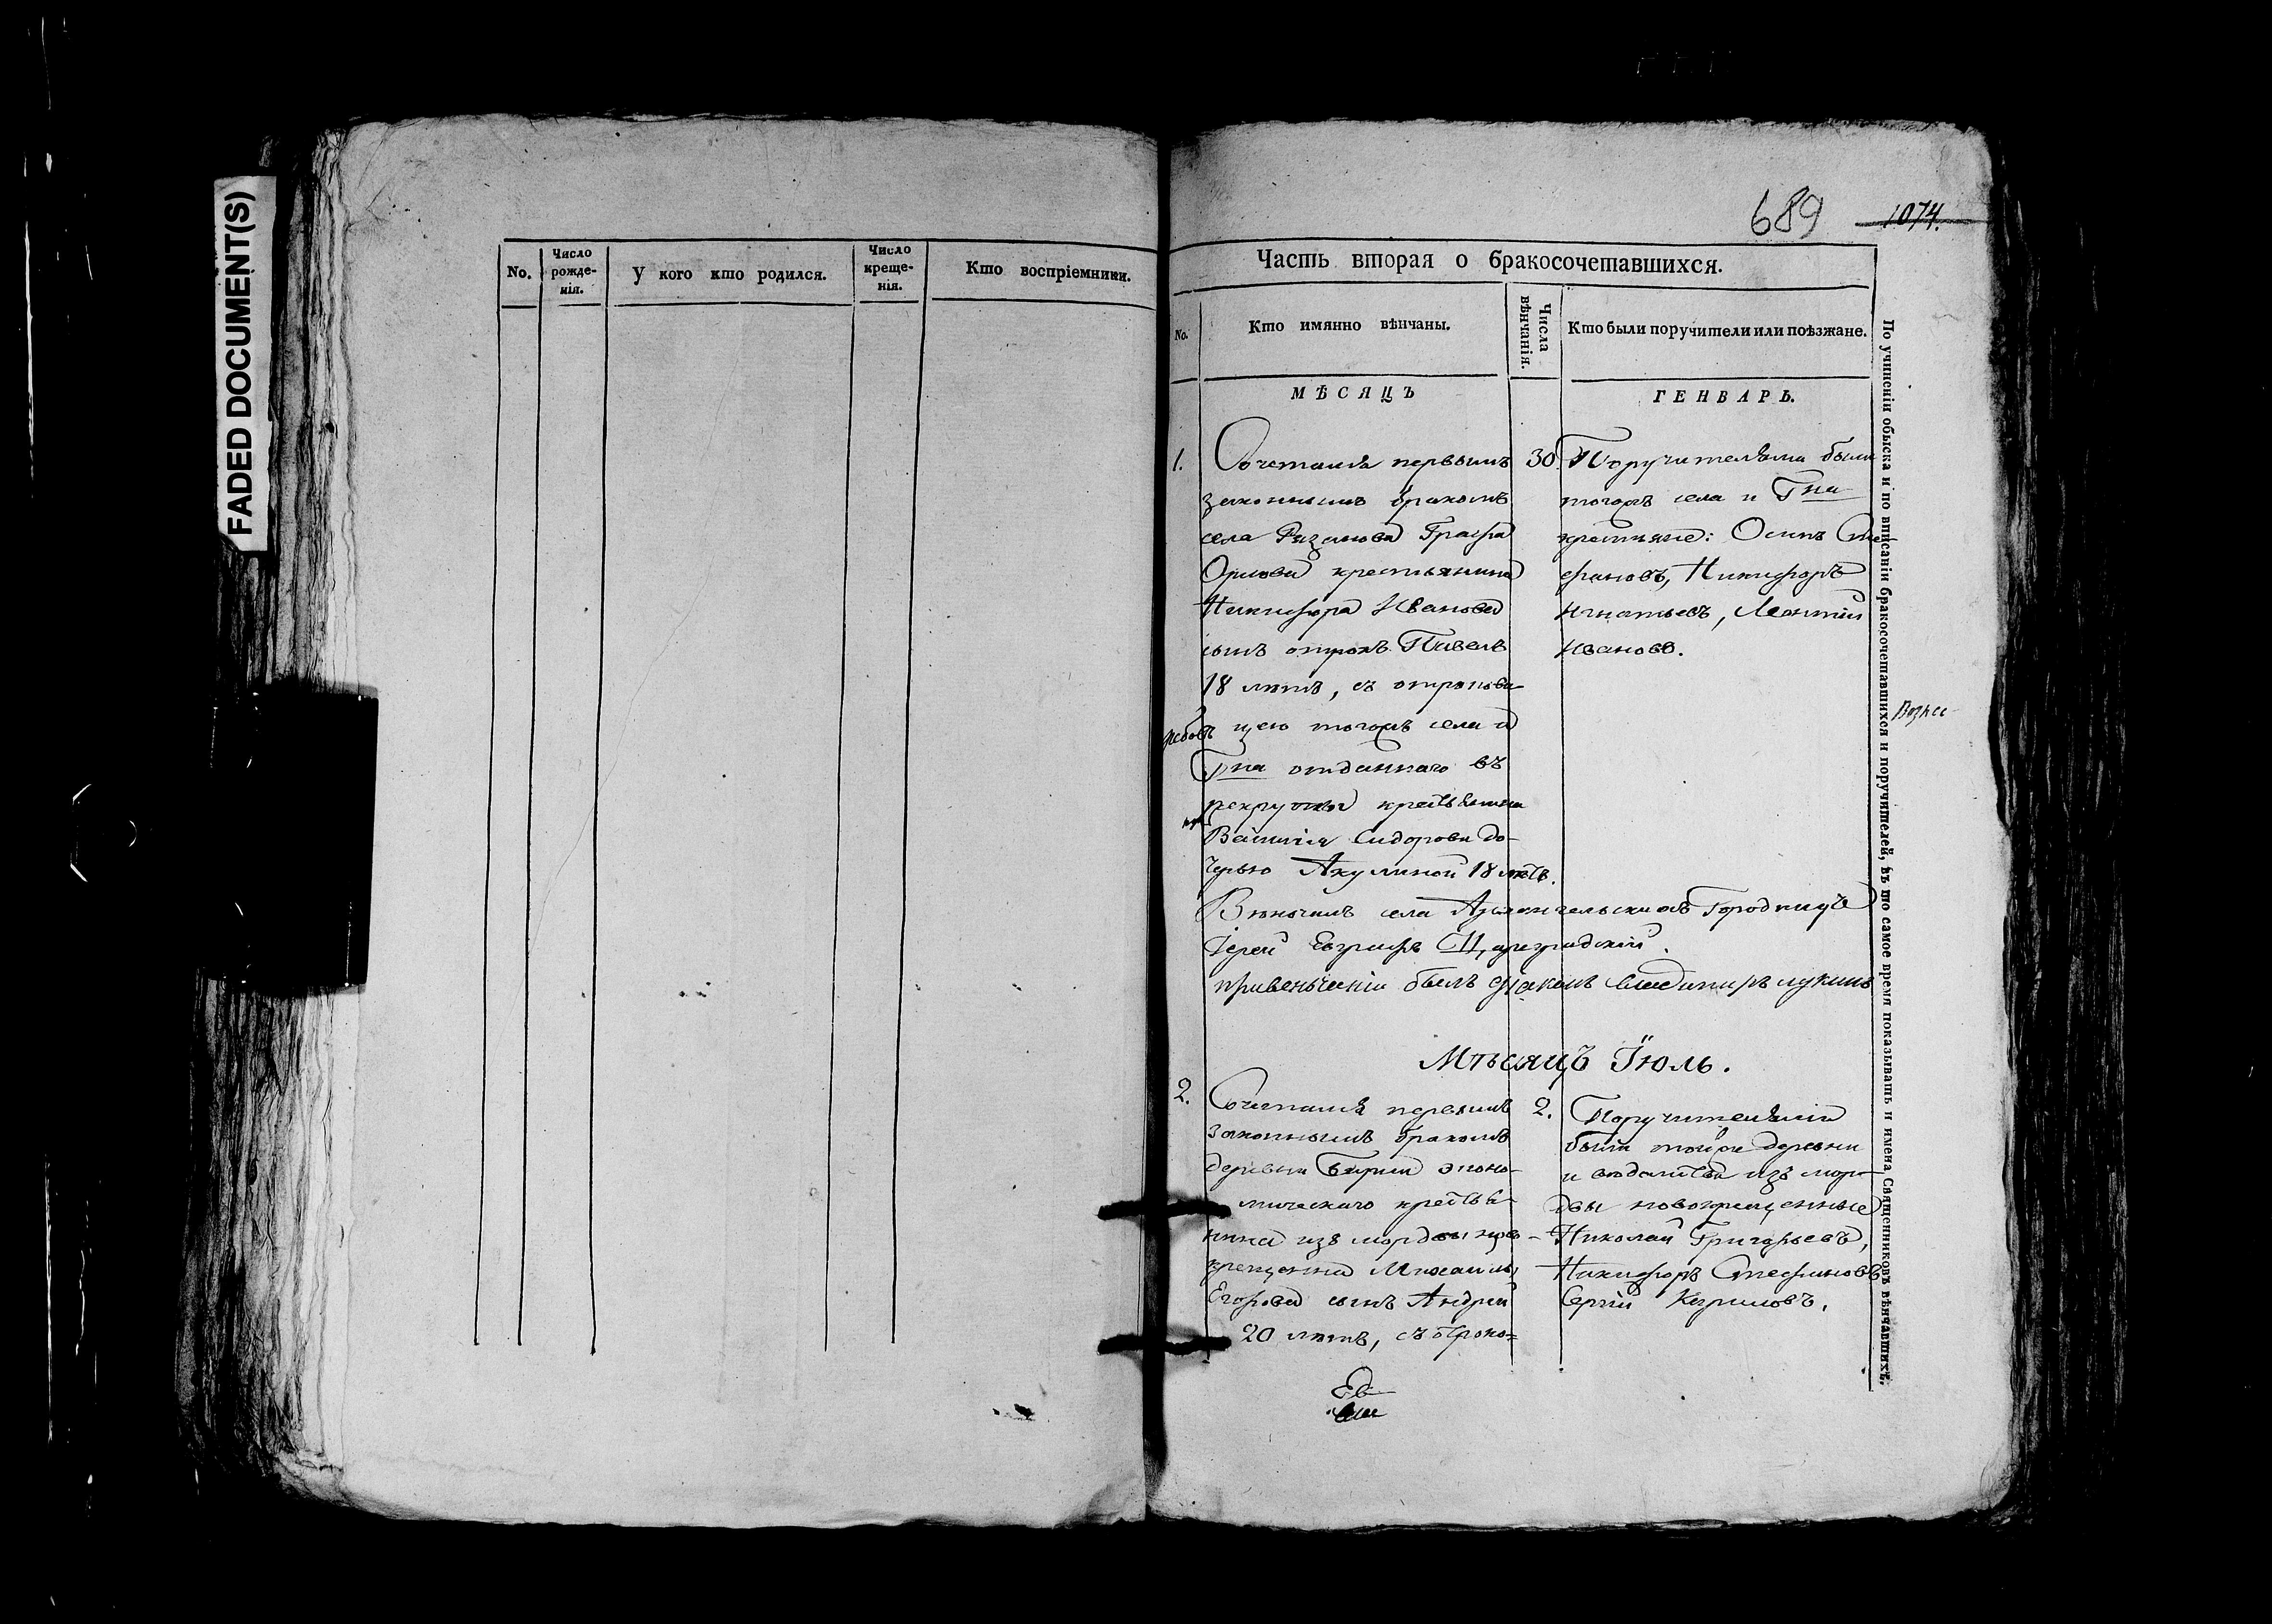 FADED DOCUMENT(S)
No.
Число рожде-нія.
У кого кто родился.
Число креще-нія.
Кто воспріемники.
689
1074.
Часть вторая о бракосочетавшихся.
No.
Кто имянно вѣнчаны.
Числа вѣнчанія.
Кто были поручители или поѣзжане.
МѢСЯЦЪ
ГЕНВАРЬ.
1.
Сочетался первымъ
законнымъ бракомъ
села Рязанова Графа
Орлова крестьянина
Никифора Иванова
сынъ отрокъ Павелъ
18 лѣтъ, съ отрокови-
цею тогожъ села и
Гна отданнаго въ
рекруты крестьянина
Василія Сидорова до-
черью Акулиной 18 лѣтъ.
30.
Поручителями были
тогожъ села и Гна
крестьяне: Осипъ Сте-
фановъ, Никифоръ
Игнатьевъ, Леонтій
Ивановъ.
Вѣнчалъ села Архангельскаго Городище
Іерей Евграфъ Цареградскій.
привенчаніи былъ дьяконъ Владимиръ Лукинъ
Мѣсяцъ Іюль.
2.
Сочетался первымъ
законнымъ бракомъ
деревни Бирли эконо-
мическаго крестья-
нина изъ мордвы ново-
крещенна Михаила
Егорова сынъ Андрей
20 лѣтъ, съ отроко=
2.
Поручителями
были тойже деревни
и вѣдомства изъ мор-
двы новокрещенные
Николай Григорьевъ,
Никифоръ Стефановъ
Сергѣй Кириловъ.
По учиненіи обыска и по вписаніи бракосочетавшихся и поручителей, въ то самое время показывать и имена Священниковъ вѣнчавшихъ.